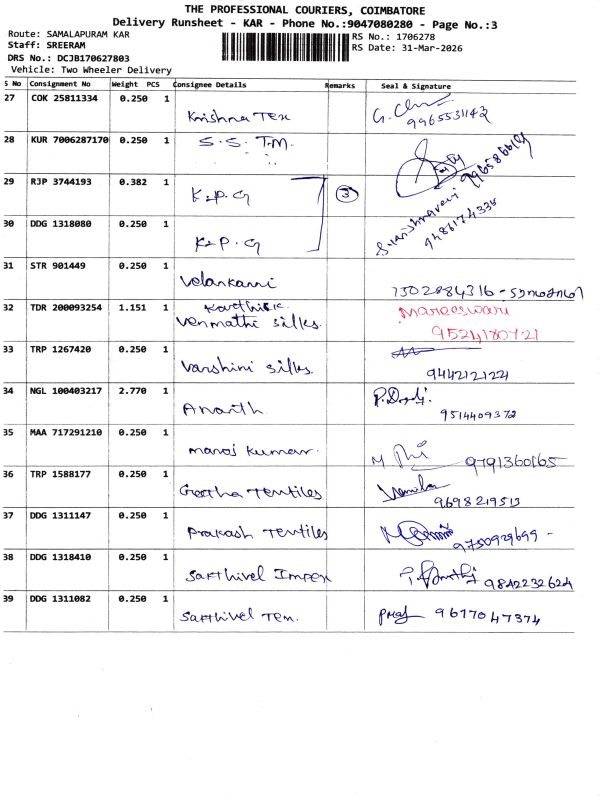 THE PROFESSIONAL COURIERS, COIMBATORE
Delivery Runsheet - KAR - Phone No.:9047080280 - Page No.:3
Route: SAMALAPURAM KAR
RS No.: 1706278
Staff: SREERAM
RS Date: 31-Mar-2026
DRS No.: DCJB170627803
Vehicle: Two Wheeler Delivery
S No Consignment No Weight PCS Consignee Details Remarks Seal & Signature
27 COK 25811334 0.250 1 Krishna Tex 9965531142
28 KUR 7006287170 0.250 1 S.S. T.M.
29 RJP 3744193 0.382 1 K.P.G 3
30 DDG 1318080 0.250 1 K.P.G 9486174335
31 STR 901449 0.250 1 Velankanni 7502884316
32 TDR 200093254 1.151 1 Karthick Venmathi silks. Mareeswari 9524180721
33 TRP 1267420 0.250 1 Varshini silks. 944212122
34 NGL 100403217 2.770 1 Ananth 9514409372
35 MAA 717291210 0.250 1 Manoj Kumar. 9791360165
36 TRP 1588177 0.250 1 Geetha Textiles 9698219513
37 DDG 1311147 0.250 1 Prakash Textiles 9750929699 -
38 DDG 1318410 0.250 1 Sakthivel Impex 9842232624
39 DDG 1311082 0.250 1 Sakthivel Tex. 9617047374